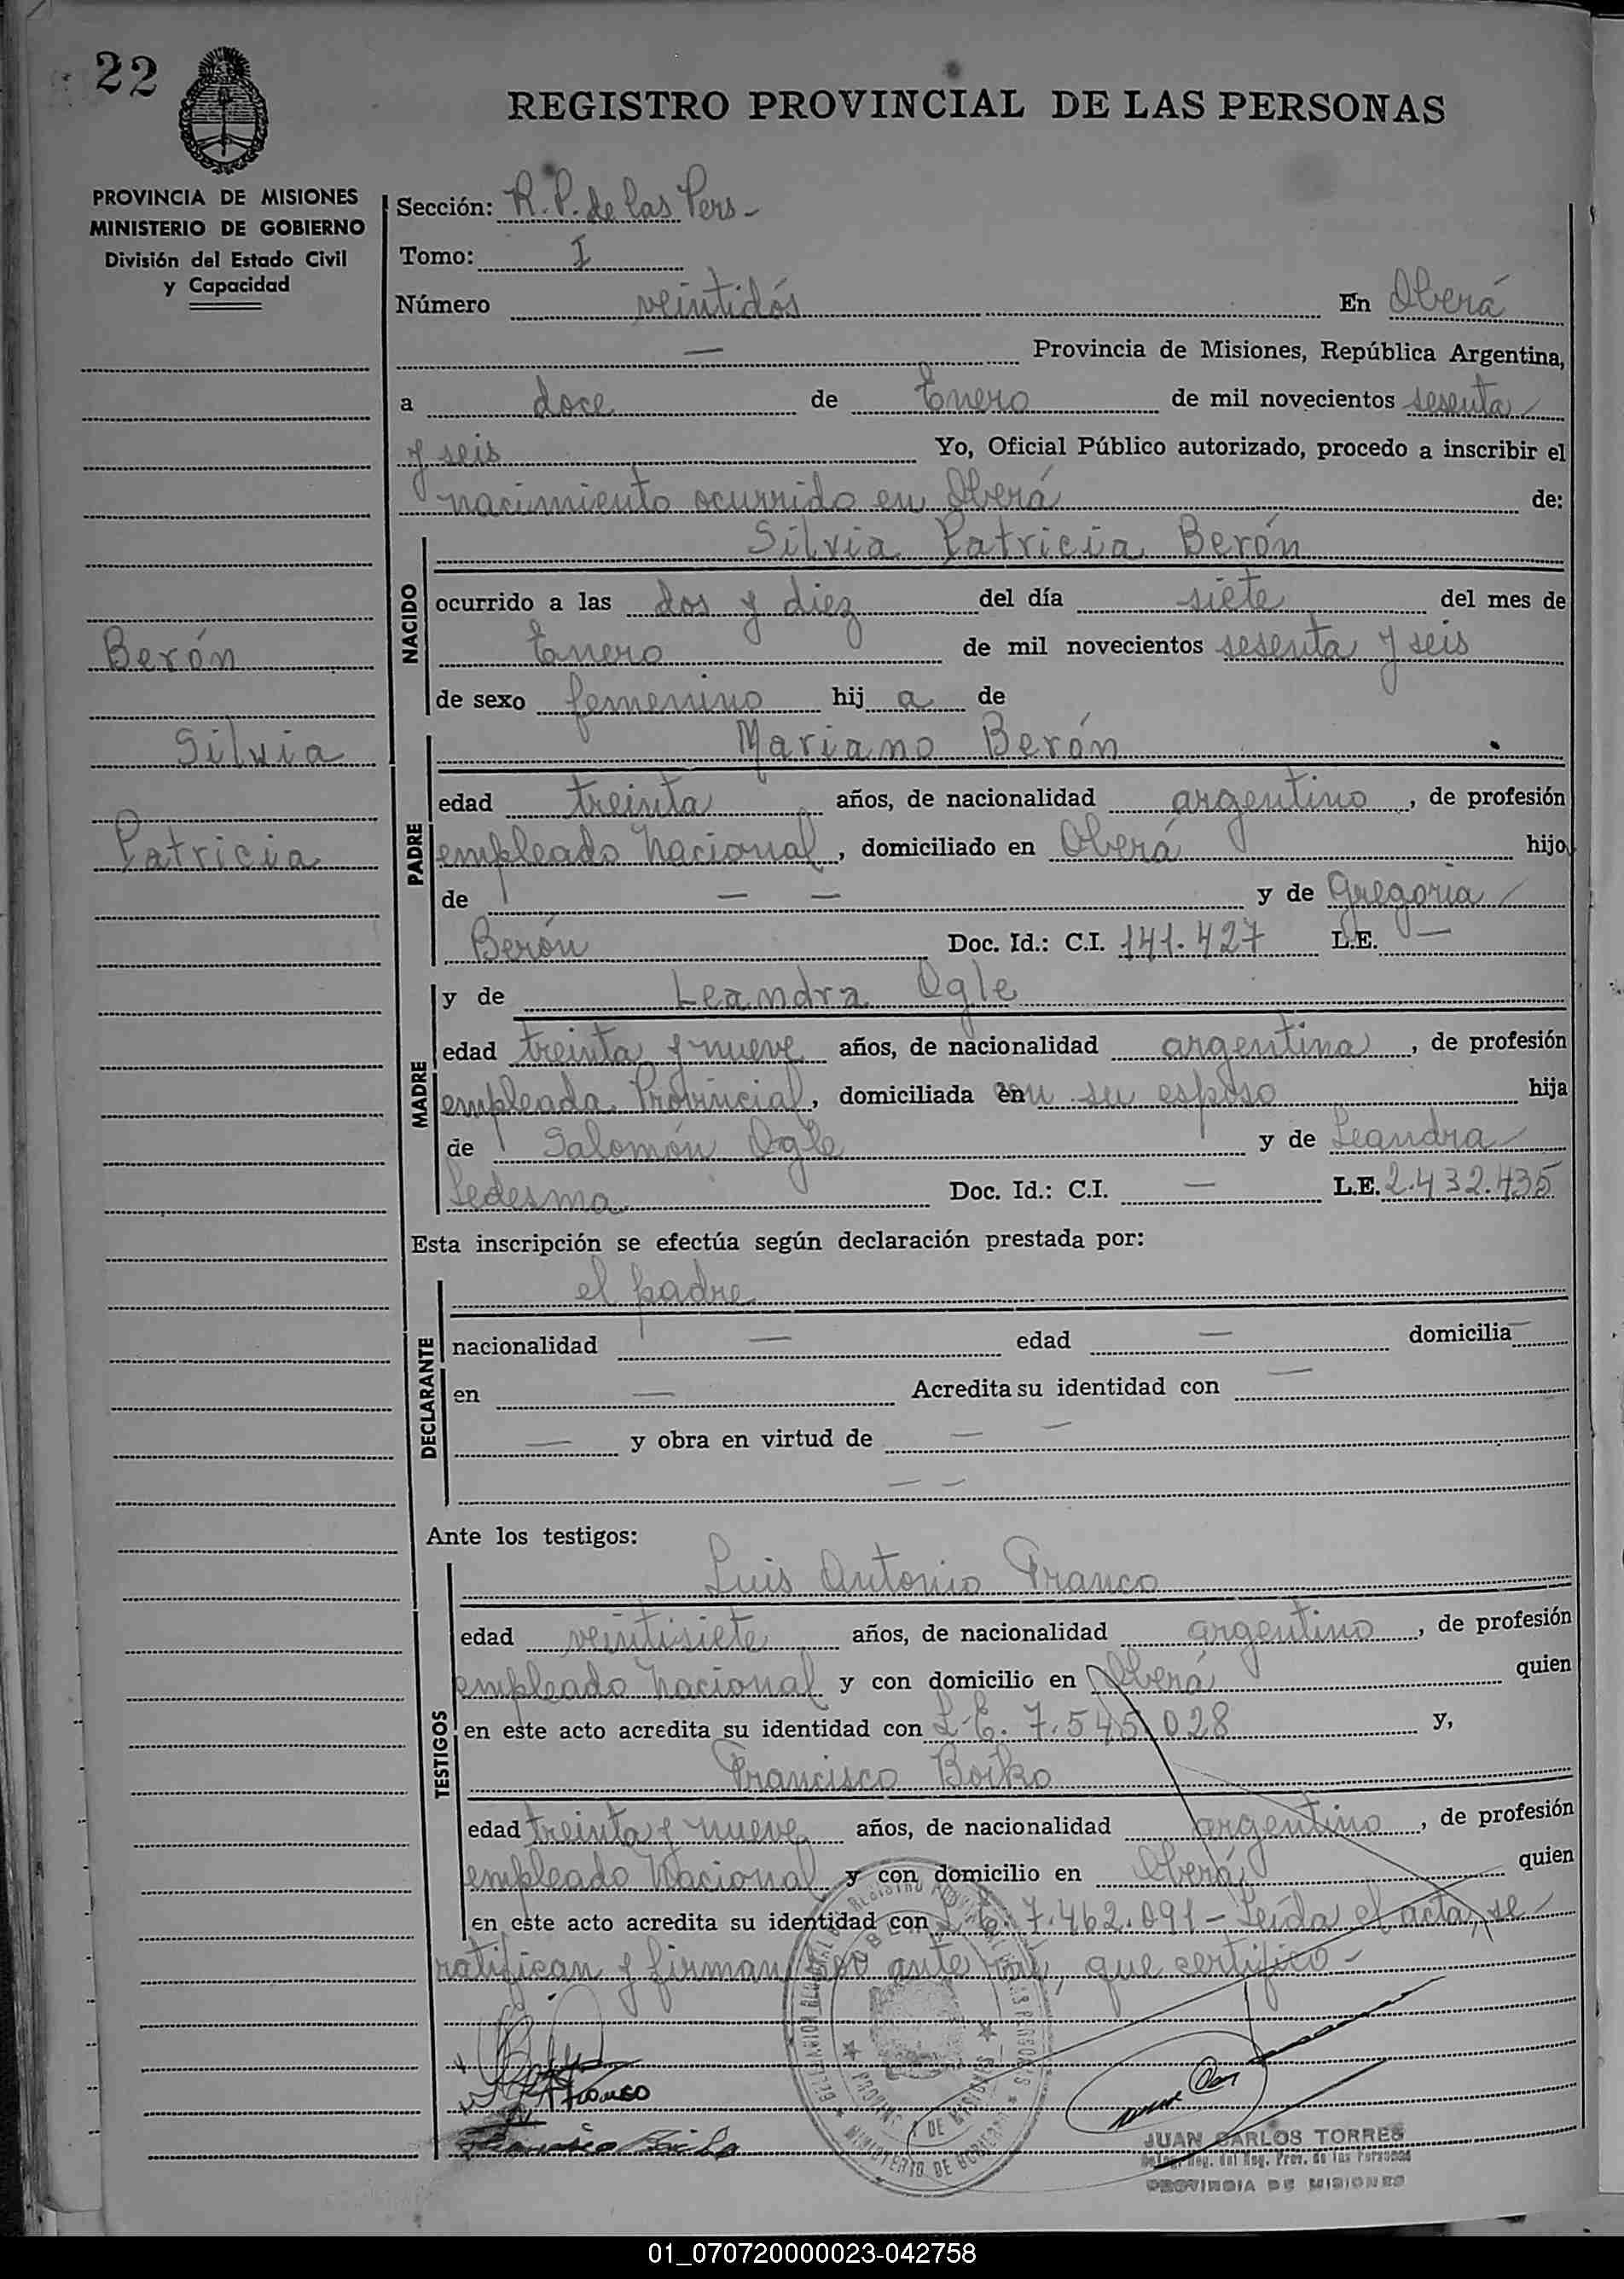 22
REGISTRO PROVINCIAL DE LAS PERSONAS
PROVINCIA DE MISIONES
MINISTERIO DE GOBIERNO
División del Estado Civil
y Capacidad
Sección: R. P. de las Pers -
Tomo: I
Número veintidós En Oberá
— Provincia de Misiones, República Argentina,
a doce de Enero de mil novecientos sesenta
y seis Yo, Oficial Público autorizado, procedo a inscribir el
nacimiento ocurrido en Oberá de:
NACIDO
Silvia Patricia Berón
ocurrido a las dos y diez del día siete del mes de
Enero de mil novecientos sesenta y seis
de sexo femenino hij a de
Berón
Silvia
Patricia
PADRE
Mariano Berón
edad treinta años, de nacionalidad argentino, de profesión
empleado Nacional, domiciliado en Oberá hijo
de — — y de Gregoria
Berón Doc. Id.: C.I. 141.427 L.E. —
MADRE
y de Leandra Ogle
edad treinta y nueve años, de nacionalidad argentina, de profesión
empleada Provincial, domiciliada con su esposo hija
de Salomón Ogle y de Leandra
Ledesma Doc. Id.: C.I. — L.E. 2.432.435
Esta inscripción se efectúa según declaración prestada por:
DECLARANTE
el padre
nacionalidad — edad — domicilia —
en — Acredita su identidad con —
— y obra en virtud de — —
— —
Ante los testigos:
TESTIGOS
Luis Antonio Franco
edad veintisiete años, de nacionalidad argentino, de profesión
empleado Nacional y con domicilio en Oberá quien
en este acto acredita su identidad con L.E. 7.545.028 y,
Francisco Boiko
edad treinta y nueve años, de nacionalidad argentino, de profesión
empleado Nacional y con domicilio en Oberá quien
en este acto acredita su identidad con L.E. 7.462.091 - Leída el acta, se
ratifican y firman por ante mí, que certifico -
Franco
PROVINCIA DE MISIONES
MINISTERIO DE GOBIERNO
JUAN CARLOS TORRES
Reg. del Reg. Prov. de las Personas
PROVINCIA DE MISIONES
01_070720000023-042758